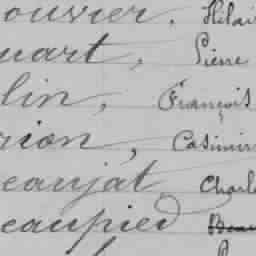 ouvrier, Hilai
uart, Pierre
lin, François
rion, Casimir
eaujat Charl
eaupied